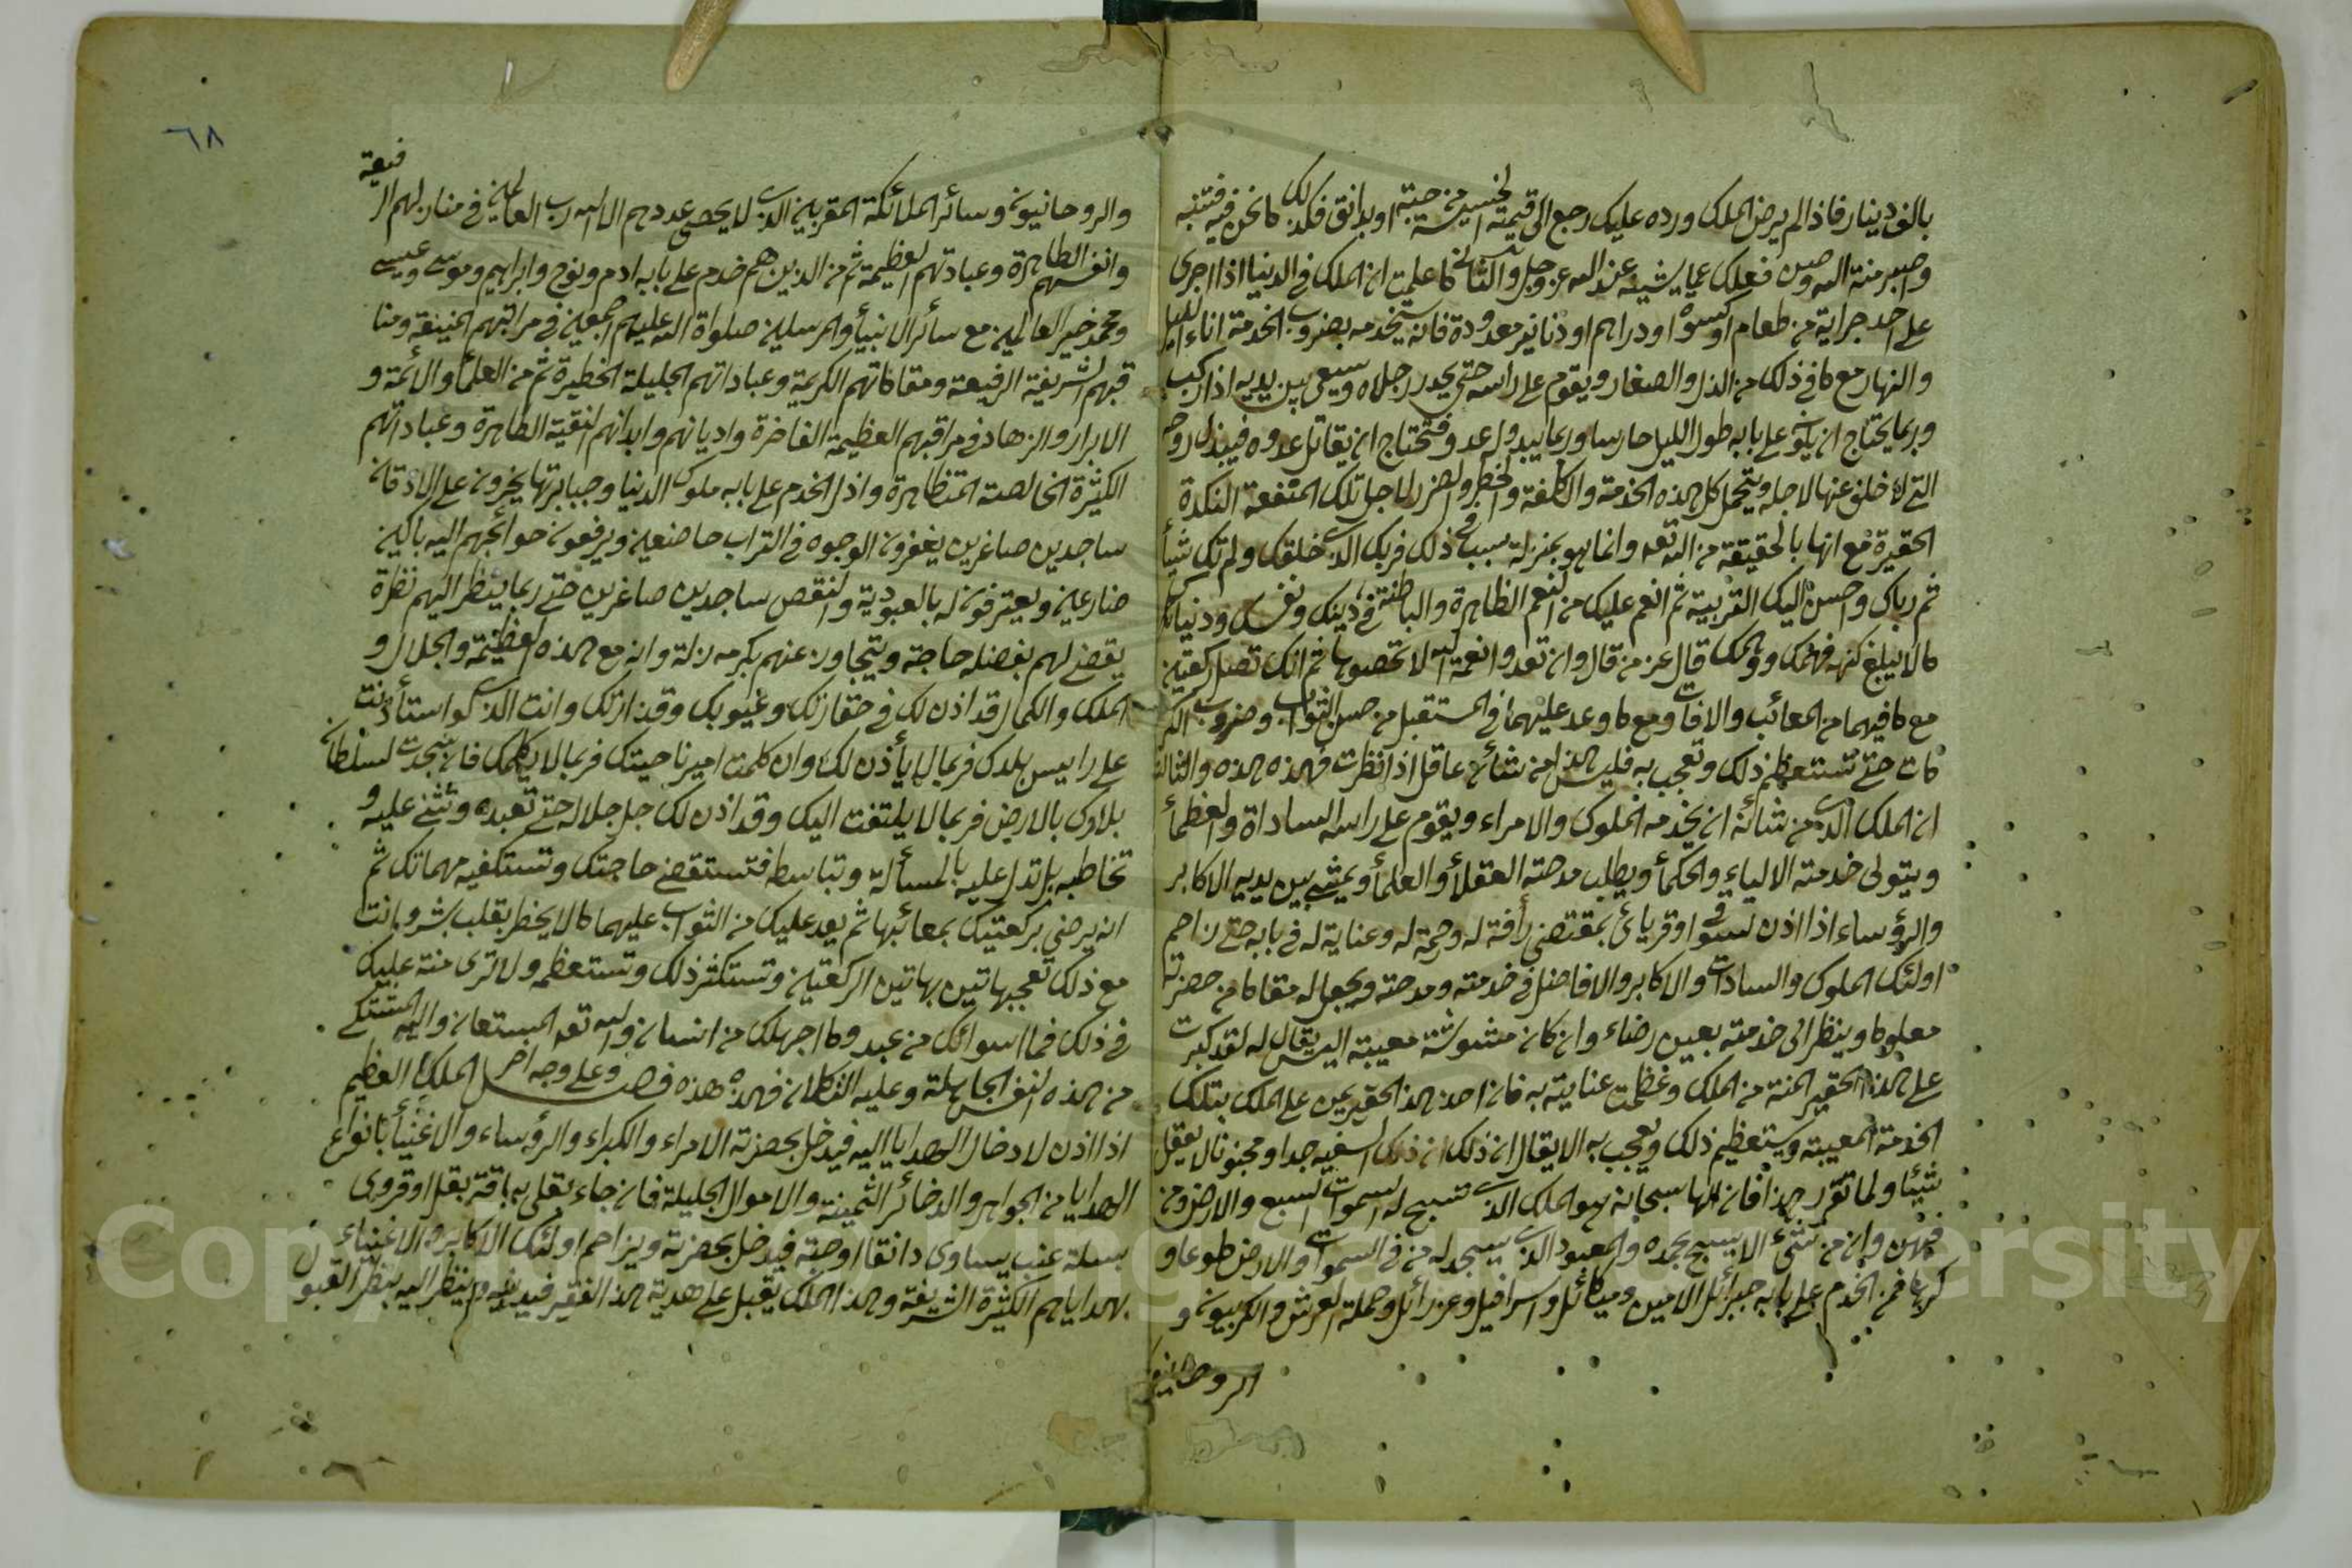 بالف دينار فاذا لم يرض الملك ورده عليك رجع الى قيمته الخسيسة من حبة او دانق فكذلك ما نحن فيه فتنبه
وابصر منة الله وصن فعلك عما يشينه عند الله عز وجل والثاني ما علمت ان الملك في الدنيا اذا اجرى
على احد جراية من طعام او كسوة او دراهم او دنانير معدودة فانه يستخدمه بضروب الخدمة اناء الليل
والنهار مع ما في ذلك من الذل والصغار ويقوم على راسه حتى يخدر رجلاه ويسعى بين يديه اذا ركب
وربما يحتاج ان يكون على بابه طول الليل حارسا وربما يبدو له عدو فتحتاج ان يقاتل عدوه فيبذل روحه
التي لا خلف عنها لاجله ويتحمل كل هذه الخدمة والكلفة والخطر والضرر لاجل تلك المنفعة النكدة
الحقيرة مع انها بالحقيقة من الله تعه وانما هو بمنزلة سبب في ذلك فربك الذي خلقك ولم تك شيأ
ثم رباك واحسن اليك التربية ثم انعم عليك من النعم الظاهرة والباطنة في دينك ونفسك ودنياك
ما لا يبلغ كنهه فهمك ووهمك قال عز من قال وان تعدوا نعمة الله لا تحصوها ثم انك تصلي ركعتين
مع ما فيهما من المعائب والافات ومع ما وعد عليهما في المستقبل من حسن الثواب وضروب الكر
مات حتى تستعظم ذلك وتعجب به فليس هذا من شأن عاقل اذا نظرت فهذه هذه والثالث
ان الملك الذي من شأنه ان يخدمه الملوك والامراء ويقوم على راسه الساداة والعظمأ
ويتولى خدمته الالباء والحكمأ ويطلب مدحته العقلأ والعلمأ ويمشي بين يديه الاكابر
والرؤساء اذا اذن لسوقي او قريائ بمقتضى رأفة له ورحمة له وعناية له في بابه حتى زاحم
اولئك الملوك والسادات والاكابر والافاضل في خدمته ومدحته ويجعل له مقاما من حضرته
معلوما وينظر الى خدمته بعين رضاء وان كان مشوشة معيبة اليس يقال له لقد كبرت
على هذا الحقير المنة من الملك وعظمت عنايته به فان احد هذا الحقير يمن على الملك بتلك
الخدمة المعيبة ويستعظم ذلك ويعجب به الا يقال ان ذلك ان ذلك لسفيه جدا ومجنونا لا يعقل
شيئا ولما تقرر هذا فان الهنا سبحانه هو الملك الذي تسبح له السموات السبع والارض ومن
فيهن وان من شئ الا يسبح بحمده والمعبود الذي يسجد له من في السموات والارض طوعا و
كرها فمن الخدم على بابه جبرائل الامين وميكائل واسرافيل وعزرائل وحملة العرش والكربيون و
الروحانيون
٦٨
والروحانيون وسائر الملائكة المقربين الذي لا يحصى عددهم الا الله رب العالمين في منازلهم الرفيعة
وانفسهم الطاهرة وعبادتهم العظيمة ثم من الذين هم خدم على بابه ادم ونوح وابراهيم وموسى وعيسى
ومحمد خير العالمين مع سائر الانبيأ والمرسلين صلواة الله عليهم اجمعين في مراتبهم المنيفة ومنا
قبهم الشريفة الرفيعة ومقاماتهم الكريمة وعباداتهم الجليلة الخطيرة ثم من العلمأ والائمة و
الابرار والزهاد في مراتبهم العظيمة الفاخرة واديانهم وابدانهم النقية الطاهرة وعباداتهم
الكثيرة الخالصة المتظاهرة واذل الخدم على بابه ملوك الدنيا وجبابرتها يخرون على الاذقان
ساجدين صاغرين يعفرون الوجوه في التراب خاضعين ويرفعون حوائجهم اليه باكين
ضارعين ويعترفون له بالعبودية والنقص ساجدين صاغرين حتى ربما ينظر اليهم نظرة
يقضي لهم بفضله حاجة ويتجاوز عنهم بكرمه زلة وانه مع هذه العظمة والجلال و
الملك والكمال قد اذن لك في حقارتك وعيوبك وقذارتك وانت الذي لو استأذنت
على رايس بلدك فربما لا يأذن لك وان كلمت امير ناحيتك فربما لا يكلمك فان سجدت لسلطان
بلادك بالارض فربما لا يلتفت اليك وقد اذن لك جل جلاله حتى تعبده وتثني عليه و
تخاطبه بل تدل عليه بالمسألة وتباسطه فتستقضي حاجتك وتستكفيه مهماتك ثم
انه يرضى بركعتيك بمعائبها ثم يعد عليك من الثواب عليهما ما لا يخطر بقلب بشر وانت
مع ذلك تعجب بهاتين بهاتين الركعتين وتستكثر ذلك وتستعظمه ولا ترى منة عليك
في ذلك فما اسوائك من عبد وما اجهلك من انسان والله تعه المستعان واليه المشتكى
من هذه النفس الجاهلة وعليه التكلان فهذه هذه فصل وعلى وجه اخر الملك العظيم
اذا اذن لادخال الهدايا اليه فيدخل بحضرته الامراء والكبراء والرؤساء والاغنيأ بانواع
الهدايا من الجواهر والذخائر الثمينة والاموال الجليلة فان جاء بقلي به باقة بقل او قروى
بسلة عنب يساوى دانقا او حبة فيدخل بحضرته ويزاحم اولئك الاكابرة الاغنياء
بهداياهم الكثيرة الشريفة وهذا الملك يقبل على هدية هذا الفقير وينظر اليه بنظر القبول